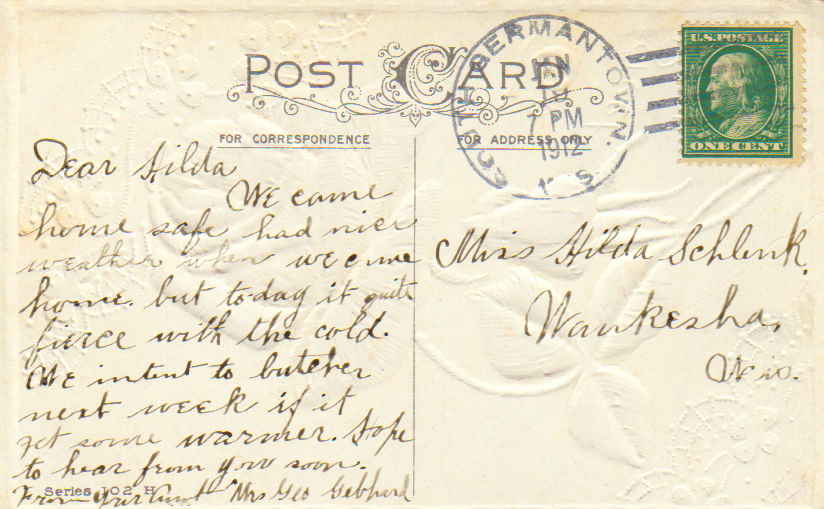 POST CARD
FOR CORRESPONDENCE
FOR ADDRESS ONLY
SOUTH GERMANTOWN.
JAN
7 PM
1912
WIS
U.S. POSTAGE
ONE CENT
Dear Hilda
We came
home safe had nice
weather when we came
home. but to-day it quite
fierce with the cold.
We intent to butcher
next week if it
get some warmer. Hope
to hear from you soon.
From your Aunt Mrs Geo Gebhard
Series 102 H
Miss Hilda Schlenk,
Waukesha,
Wis.